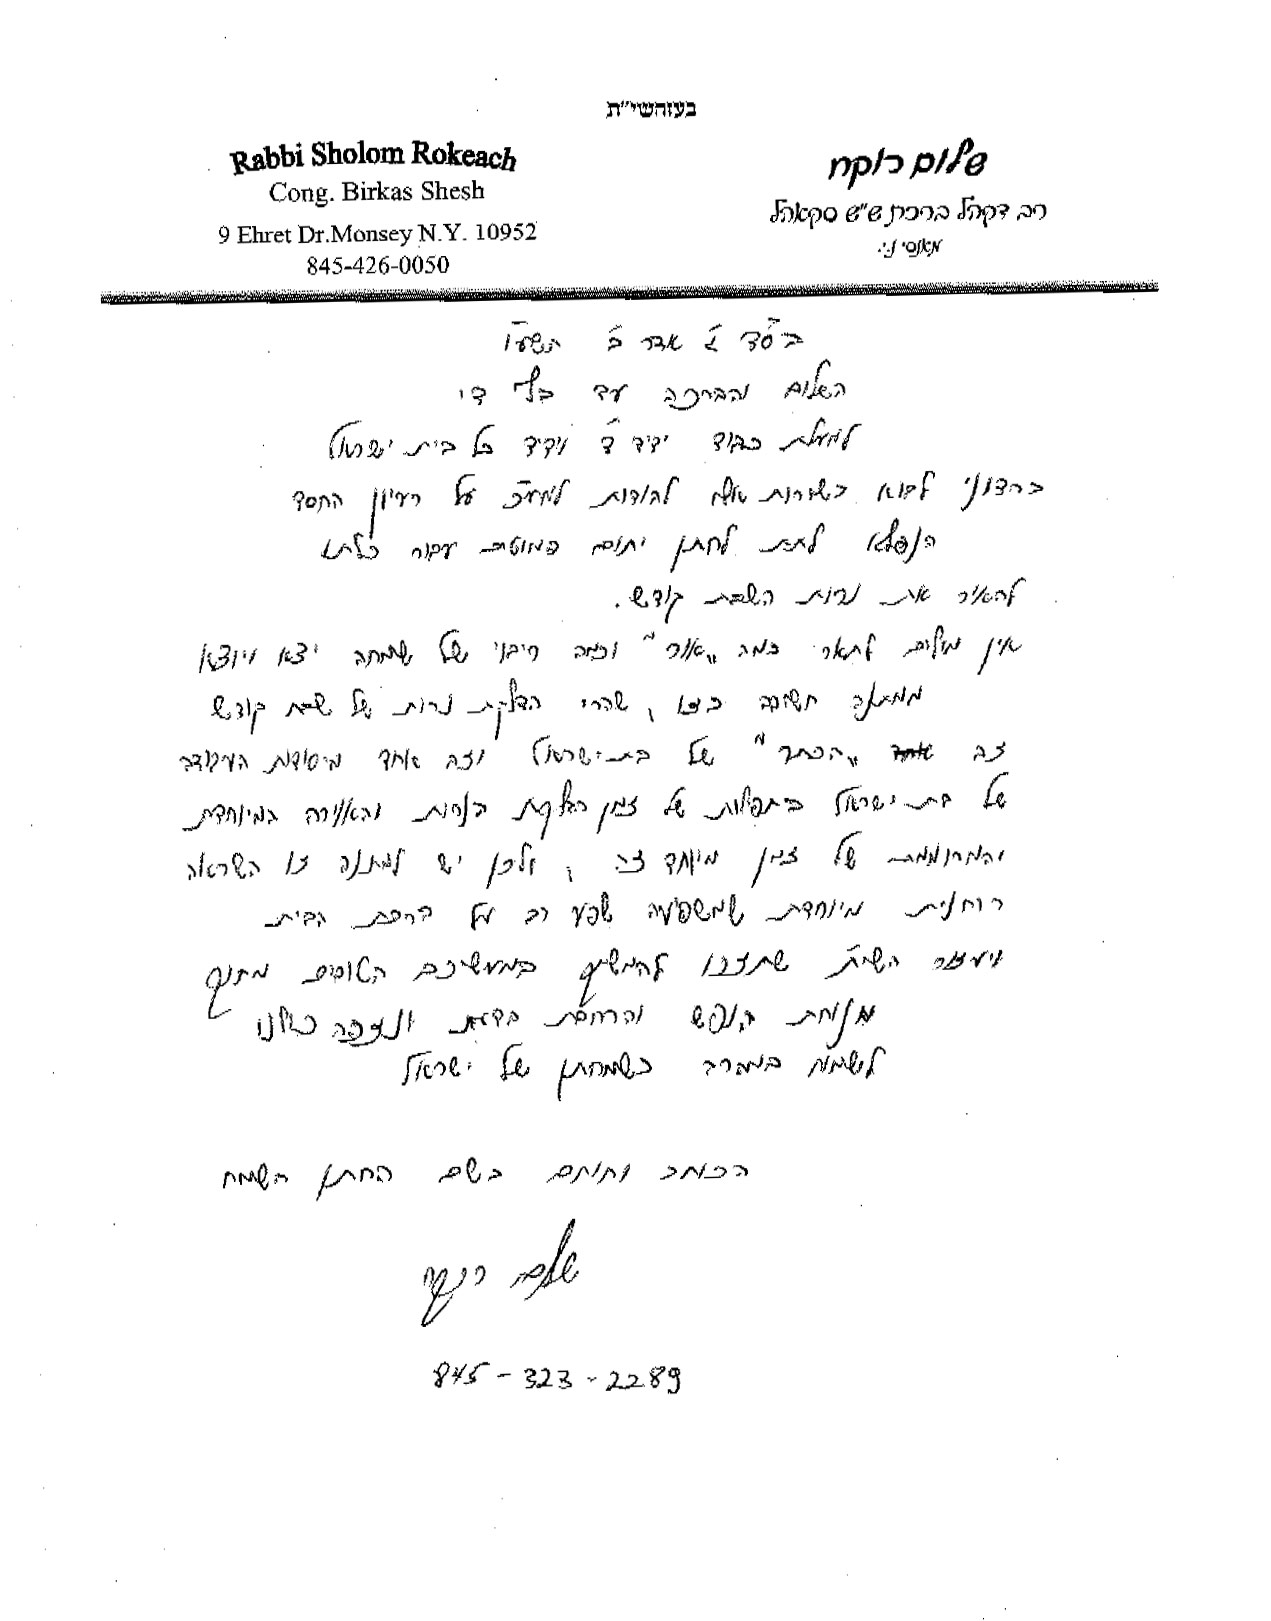 בעזהשי"ת
Rabbi Sholom Rokeach
Cong. Birkas Shesh
9 Ehret Dr.Monsey N.Y. 10952
845-426-0050
שלום רוקח
רב דקהל ברכת ש"ש סקאהל
מאנסי נ.י.
בס"ד ג' אדר ב' תשע"ו
השלום והברכה עד בלי די
למעלת כבוד ידיד ה' וידיד כל בית ישראל
ברצוני לבוא בשורות אלא להודות למע"כ על רעיון החסד
הנפלא לתת לחתן יתום פמוטים עבור כלתו
להאיר את נרות השבת קודש.
אין מילים לתאר כמה "אור" וכמה ריבוי של שמחה יצא ויוצא
ממתנה חשובה כזו, שהרי הדלקת נרות של שבת קודש
זה "הכתר" של בת-ישראל וזה אחד מיסודות העבודה
של בת-ישראל בתפילות של זמן הדלקת הנרות והאוירה המיוחדת
והמרוממת של זמן מיוחד זה, ולכן יש למתנה זו השראה
רוחנית מיוחדת שמשפיעה שפע רב על ברכת הבית
ויעזור השי"ת שתזכו להמשיך במעשיכם הטובים מתוך
מנוחת הנפש והרחבת הדעת ונצפה כולנו
לשמוח בשמחתן של ישראל
הכותב וחותם בשם החתן השמח
שלום רוקח
845-323-2289